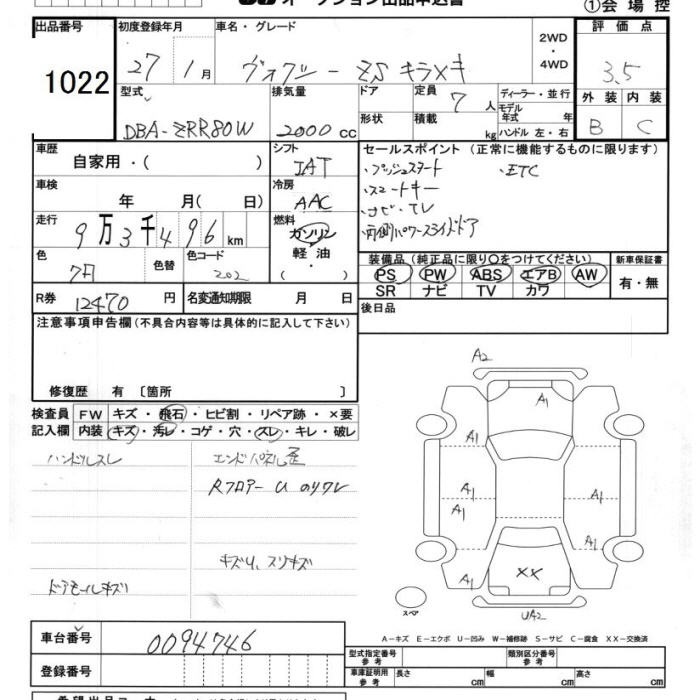 オークション出品申込書 ①会場控
出品番号 初度登録年月 車名・グレード 2WD・4WD 評価点
1022 27年1月 ヴォクシー ZS キラメキ 3.5
型式 排気量 ドア 定員 7人 ディーラー・並行 外装 内装
DBA-ZRR80W 2000cc 形状 積載 kg モデル年式 年 ハンドル 左・右 B C
車歴 自家用・( ) シフト IAT セールスポイント(正常に機能するものに限ります)
・プッシュスタート ・ETC
車検 年 月(日) 冷房 AAC ・スマートキー
・ナビ・TV
走行 9万3千496km 燃料 ガソリン・軽油・( ) ・両側パワースライドドア
色 色替 色コード 202 装備品(純正品に限り○をつけてください) 新車保証書
PS PW ABS エアB AW 有・無
SR ナビ TV カワ
R券 12470円 名変通知期限 月 日 後日品
注意事項申告欄(不具合内容等は具体的に記入して下さい)
修復歴 有 〔箇所 〕
検査員 FW キズ・飛石・ヒビ割・リペア跡・×要
記入欄 内装 キズ・汚レ・コゲ・穴・スレ・キレ・破レ
ハンドルスレ エンドパネル歪
Rフロアー U のりワレ
キズU、スリキズ
ドアモールキズ
A2
A1
A1
A1 A1
A1
A1 A1
XX
スペア UA2
A-キズ E-エクボ U-凹み W-補修跡 S-サビ C-腐食 XX-交換済
車台番号 0094746 型式指定番号 参考 類別区分番号 参考
登録番号 車庫証明用 参考 長さ cm 幅 cm 高さ cm